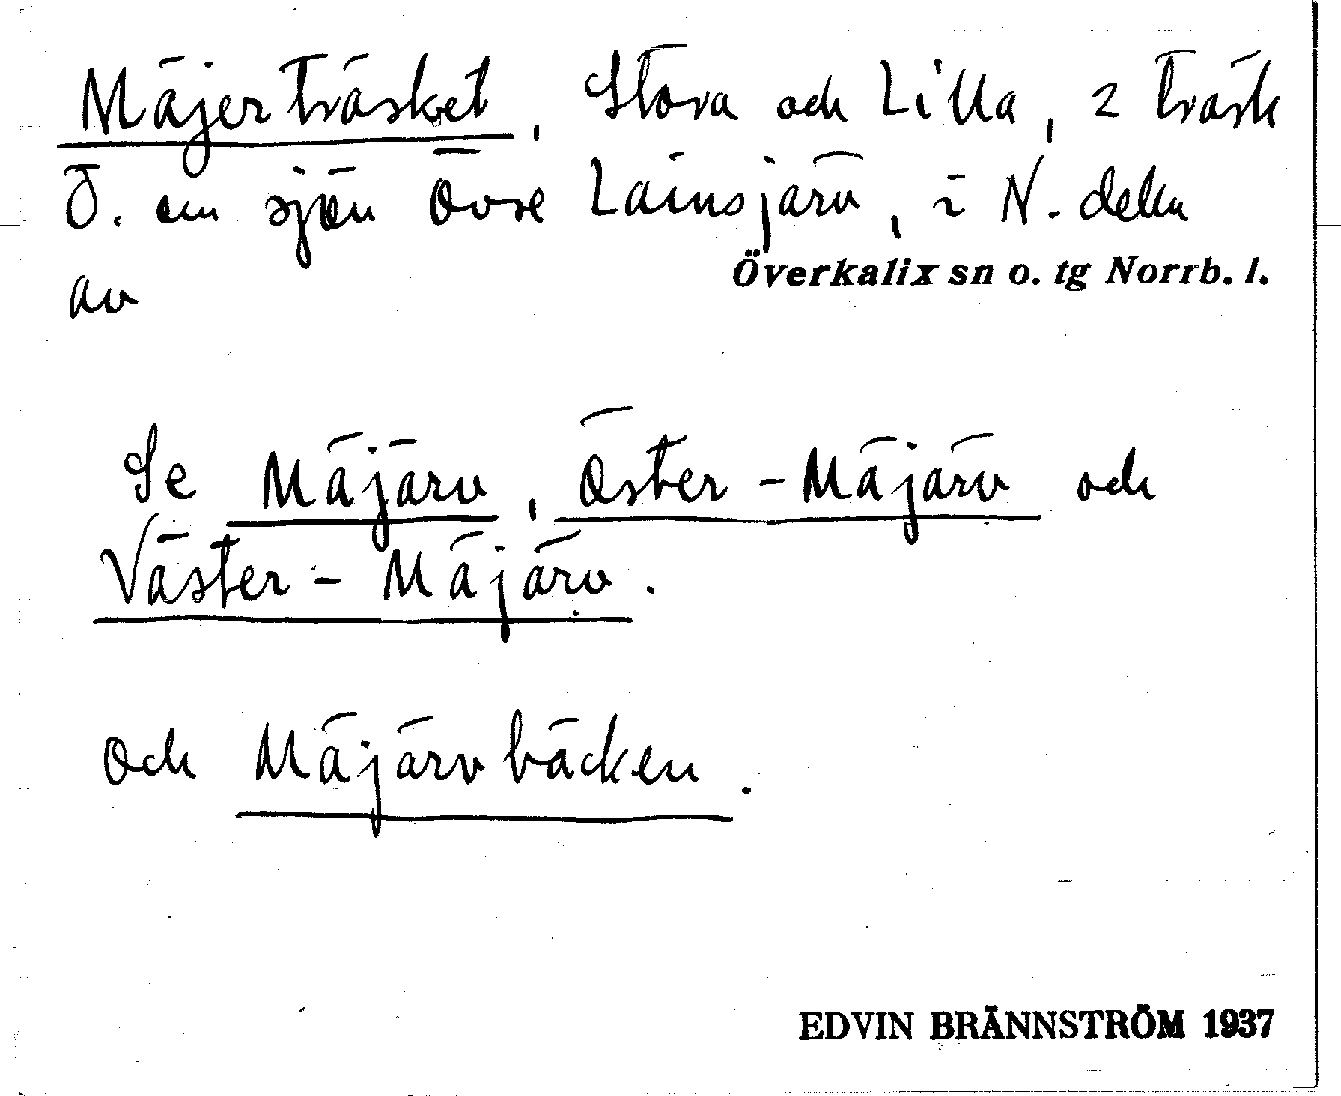 Mäjerträsket, Stora och Lilla, 2 träsk
Ö. om sjön Övre Lainsjärv, i N. delen
av Överkalix sn o. tg Norrb. l.
Se Mäjärv, Öster-Mäjärv och
Väster-Mäjärv.
och Mäjärvbäcken.
EDVIN BRÄNNSTRÖM 1937